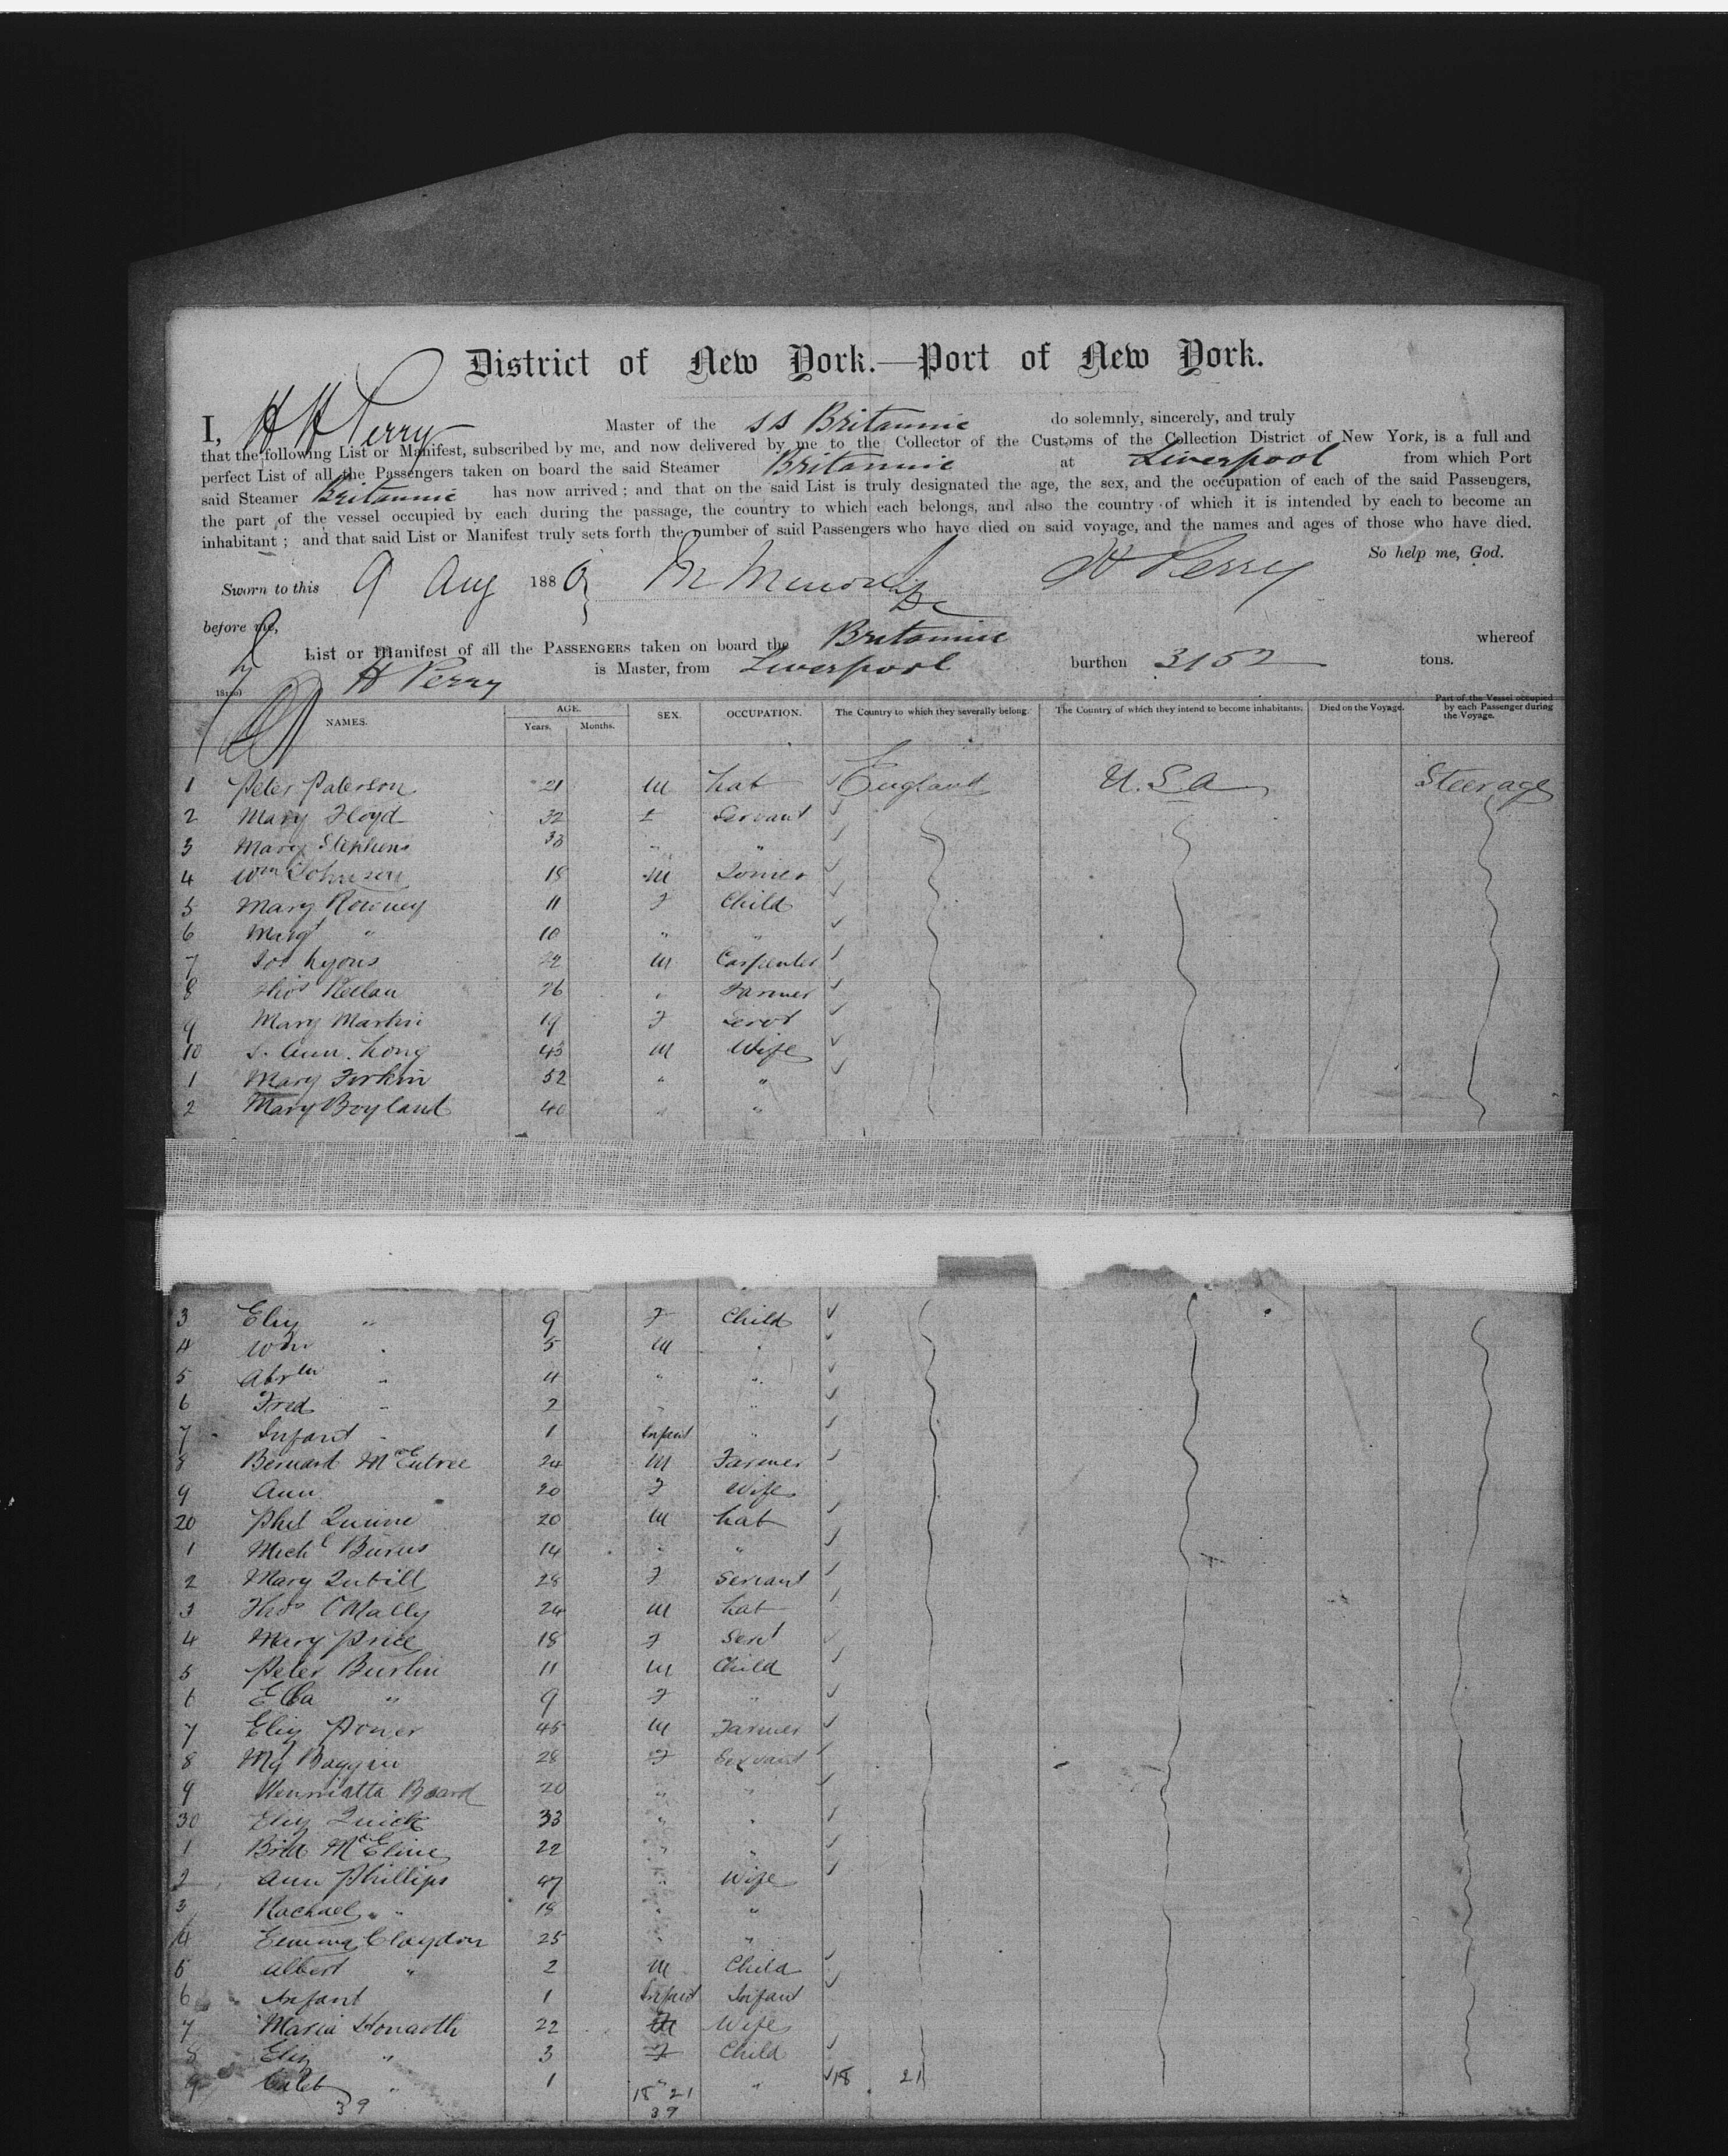 District of New York.—Port of New York.
I, H H Perry Master of the SS Britannic do solemnly, sincerely, and truly
that the following List or Manifest, subscribed by me, and now delivered by me to the Collector of the Customs of the Collection District of New York, is a full and
perfect List of all the Passengers taken on board the said Steamer Britannic at Liverpool from which Port
said Steamer Britannic has now arrived; and that on the said List is truly designated the age, the sex, and the occupation of each of the said Passengers,
the part of the vessel occupied by each during the passage, the country to which each belongs, and also the country of which it is intended by each to become an
inhabitant; and that said List or Manifest truly sets forth the number of said Passengers who have died on said voyage, and the names and ages of those who have died.
So help me, God.
Sworn to this 9 Aug 188 H Perry
before me,
List or Manifest of all the PASSENGERS taken on board the Britannic whereof
H Perry is Master, from Liverpool burthen 3152 tons.
NAMES. AGE. Years. Months. SEX. OCCUPATION. The Country to which they severally belong. The Country of which they intend to become inhabitants. Died on the Voyage. Part of the Vessel occupied by each Passenger during the Voyage.
1 Peter Paterson 21 M Lab England U.S.A Steerage
2 Mary Floyd 32 F Servant
3 Mary Stephens 33 " "
4 Wm Johnson 18 M Joiner
5 Mary Rowney 11 F Child
6 Margt " 10 " "
7 Jos Lyons 22 M Carpenter
8 Thos Keelan 26 " Farmer
9 Mary Martin 19 F Servt
10 S. Ann Long 43 M Wife
1 Mary Firkin 52 " "
2 Mary Boyland 40 " "
3 Eliz " 9 F Child
4 Wm " 5 M "
5 Abrm " 4 " "
6 Fred " 2 " "
7 Infant " 1 Infant "
8 Bernard McEntree 24 M Farmer
9 Ann 20 F Wife
20 Phil Quinn 20 M Lab
1 Michl Burns 14 " "
2 Mary Tubill 28 F Servant
3 Thos O'Mally 24 M Lab
4 Mary Price 18 F Servt
5 Peter Burlin 11 M Child
6 Ella " 9 F "
7 Eliz Power 45 M Farmer
8 My Baggin 28 F Servant
9 Henrietta Board 20 " "
30 Eliz Quick 33 " "
1 Brid McEline 22 " "
2 Ann Phillips 47 " Wife
3 Rachael " 18 " "
4 Emma Claydon 25 " "
5 Albert " 2 M Child
6 Infant 1 Infant Infant
7 Maria Howarth 22 Wife
8 Eliz " 3 F Child
9 Caleb " 1 " " 18 21
39 18 21
39